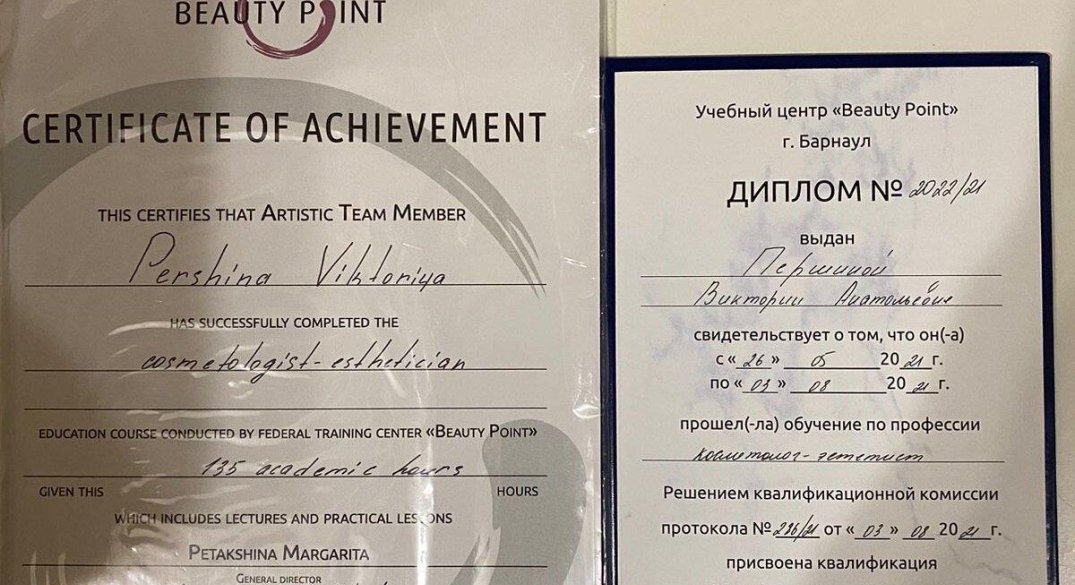 BEAUTY POINT
CERTIFICATE OF ACHIEVEMENT
THIS CERTIFIES THAT ARTISTIC TEAM MEMBER
Pershina Viktoriya
HAS SUCCESSFULLY COMPLETED THE
cosmetologist-esthetician
EDUCATION COURSE CONDUCTED BY FEDERAL TRAINING CENTER «BEAUTY POINT»
135 academic hours
GIVEN THIS HOURS
WHICH INCLUDES LECTURES AND PRACTICAL LESSONS
PETAKSHINA MARGARITA
GENERAL DIRECTOR
Учебный центр «Beauty Point»
г. Барнаул
ДИПЛОМ № 2022/21
выдан
Першиной
Виктории Анатольевне
свидетельствует о том, что он(-а)
с « 26 » 05 2021 г.
по « 03 » 08 2021 г.
прошел(-ла) обучение по профессии
косметолог-эстетист
Решением квалификационной комиссии
протокола № 236/21 от « 03 » 08 2021 г.
присвоена квалификация